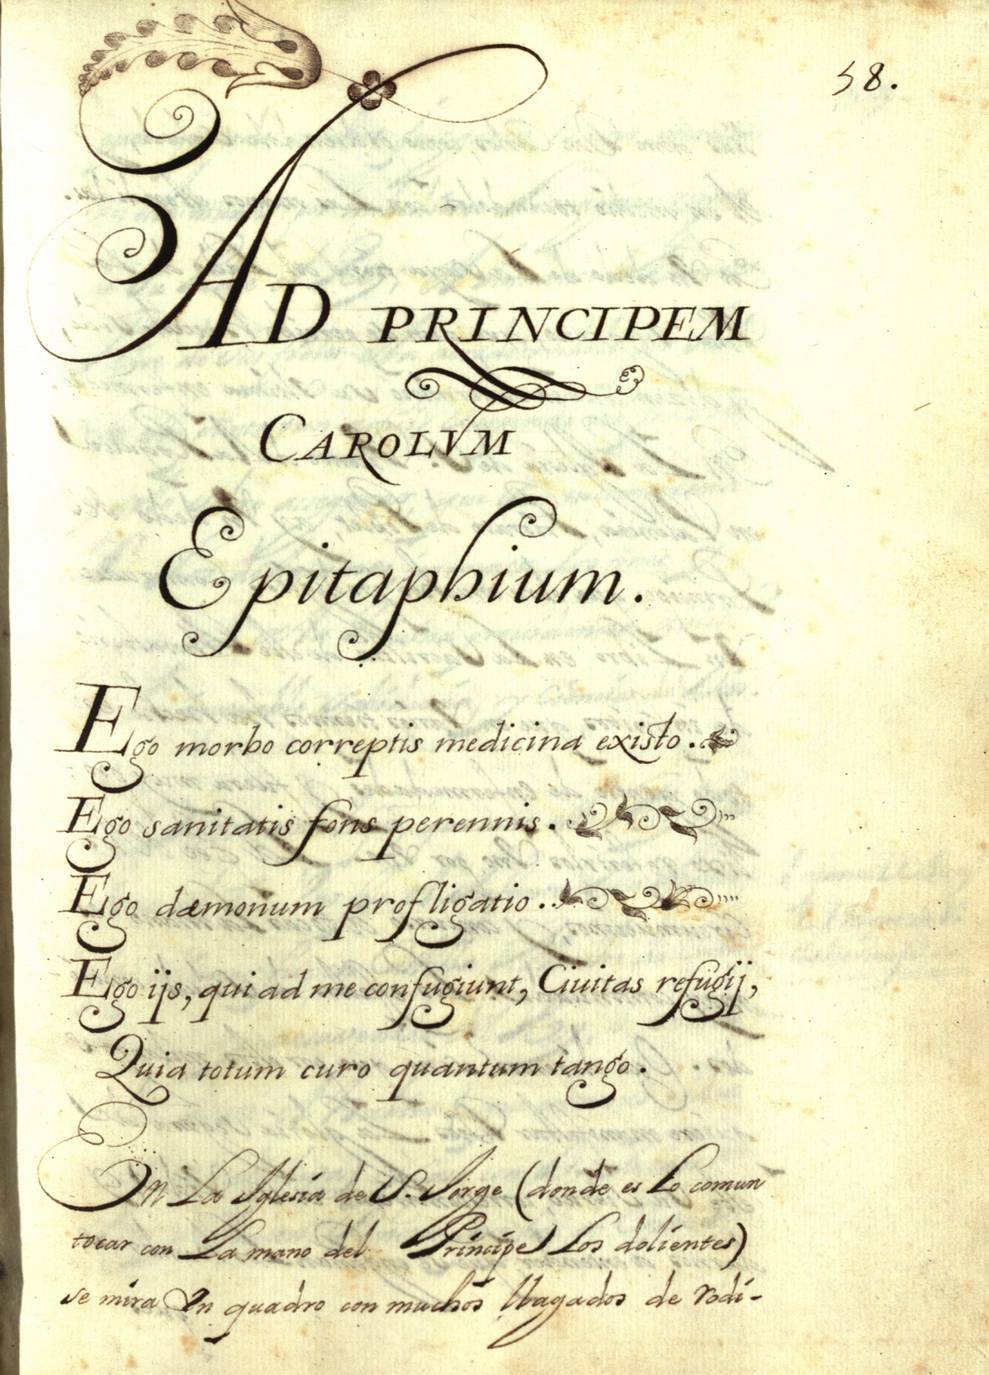 58.
AD PRINCIPEM
CAROLVM
Epitaphium.
Ego morbo correptis medicina existo.
Ego sanitatis fons perennis.
Ego dæmonum profligatio.
Ego ijs, qui ad me confugiunt, Ciuitas refugij,
Quia totum curo quantum tango.
En La Iglesia de S. Jorge (donde es Lo comun
tocar con La mano del Principe Los dolientes)
se mira Vn quadro con muchos llagados de rodi-